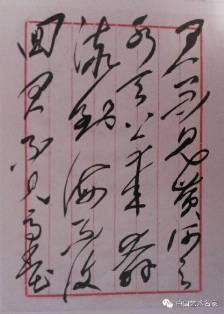 君不見黄河之
水天上来奔
流到海不復
回君不见高堂
中国艺术名家